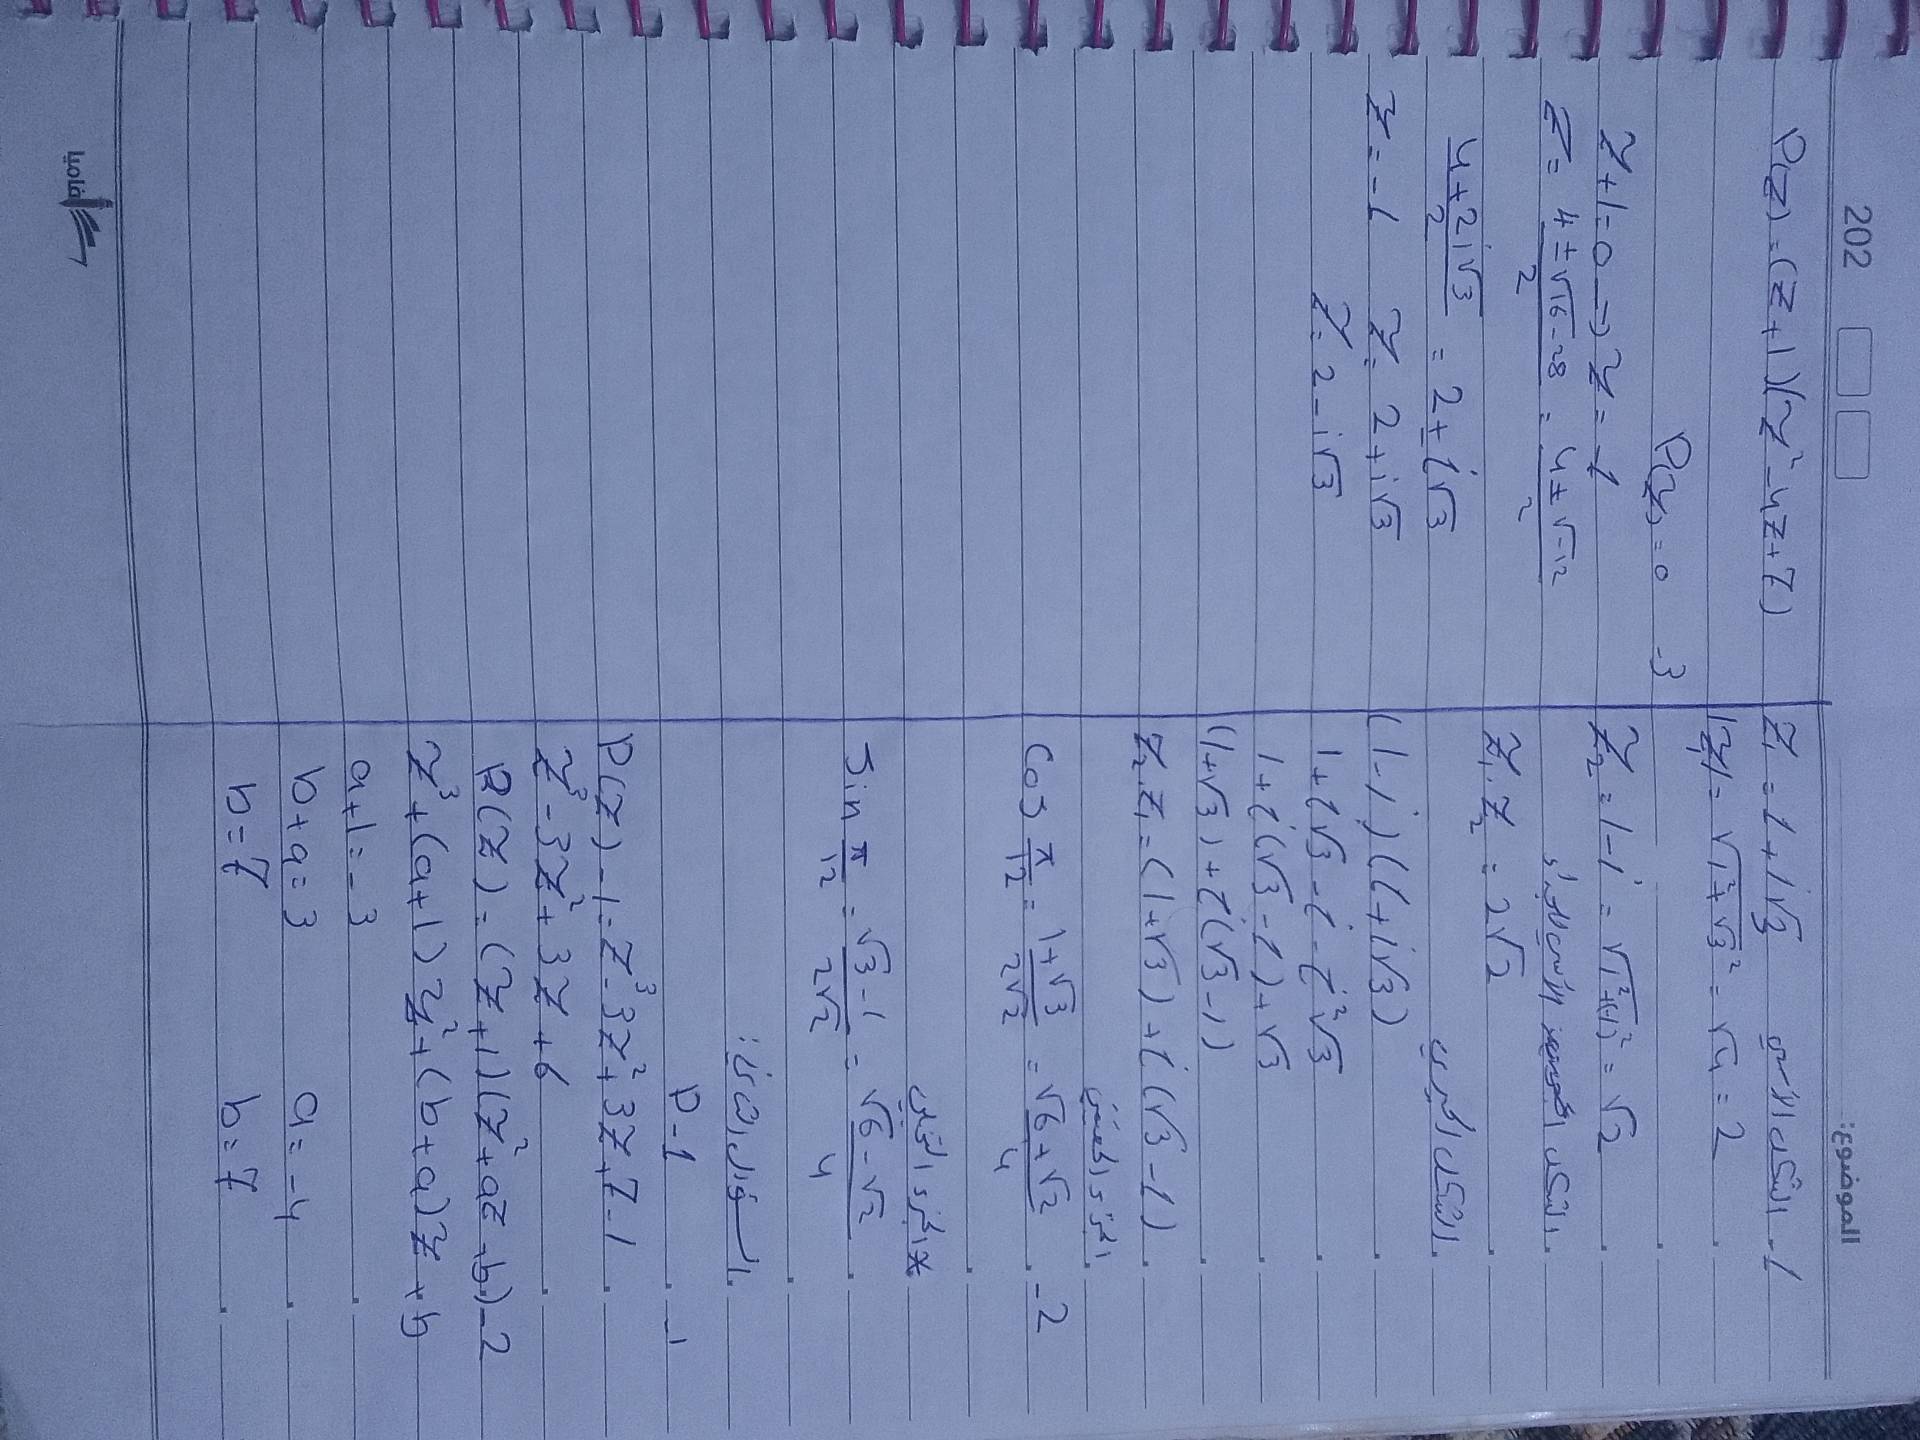 الموضوع:
202
1- الشكل الأسي Z₁ = 1 + i√3
|Z₁| = √1² + √3² = √4 = 2
Z₂ = 1 - i = √1² + (-1)² = √2
الشكل الأسي للجداء
Z₁ . Z₂ = 2√2
الشكل الجبري
(1 - i)(1 + i√3)
1 + i√3 - i - i²√3
1 + i(√3 - 1) + √3
(1 + √3) + i(√3 - 1)
Z₂ . Z₁ = (1 + √3) + i(√3 - 1)
2-
cos π/12 = 1 + √3 / 2√2 = √6 + √2 / 4
Sin π/12 = √3 - 1 / 2√2 = √6 - √2 / 4
السؤال الثاني:
1- P - 1
P(z) - 1 = z³ - 3z² + 3z + 7 - 1
z³ - 3z² + 3z + 6
2- P(z) = (z + 1)(z² + az + b)
z³ + (a + 1) z² + (b + a) z + b
a + 1 = -3 a = -4
b + a = 3 b = 7
b = 7
P(z) = (z + 1)(z² - 4z + 7)
3- P(z) = 0
z + 1 = 0 → z = -1
z = 4 ± √16 - 28 / 2 = 4 ± √-12 / 2
4 ± 2i√3 / 2 = 2 ± i√3
z = -1 z = 2 + i√3
z = 2 - i√3
أفاميا